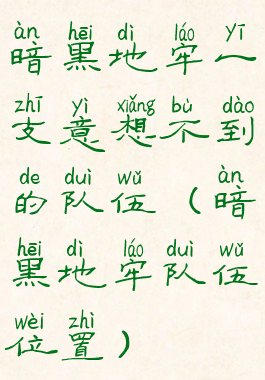 àn hēi dì láo yī
暗黑地牢一
zhī yì xiǎng bù dào
支意想不到
de duì wǔ àn
的队伍（暗
hēi dì láo duì wǔ
黑地牢队伍
wèi zhì
位置）